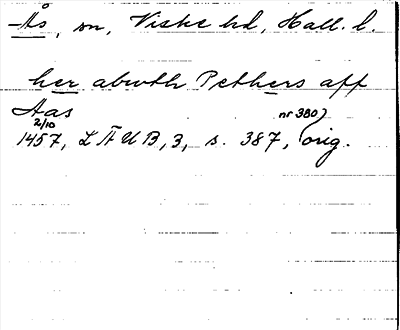 Ås, sn, Viske hd, Hall. l.
her abroth Pethers aff
Aas
2/10 nr 380)
1457, LÄUB, 3, s. 387, orig.